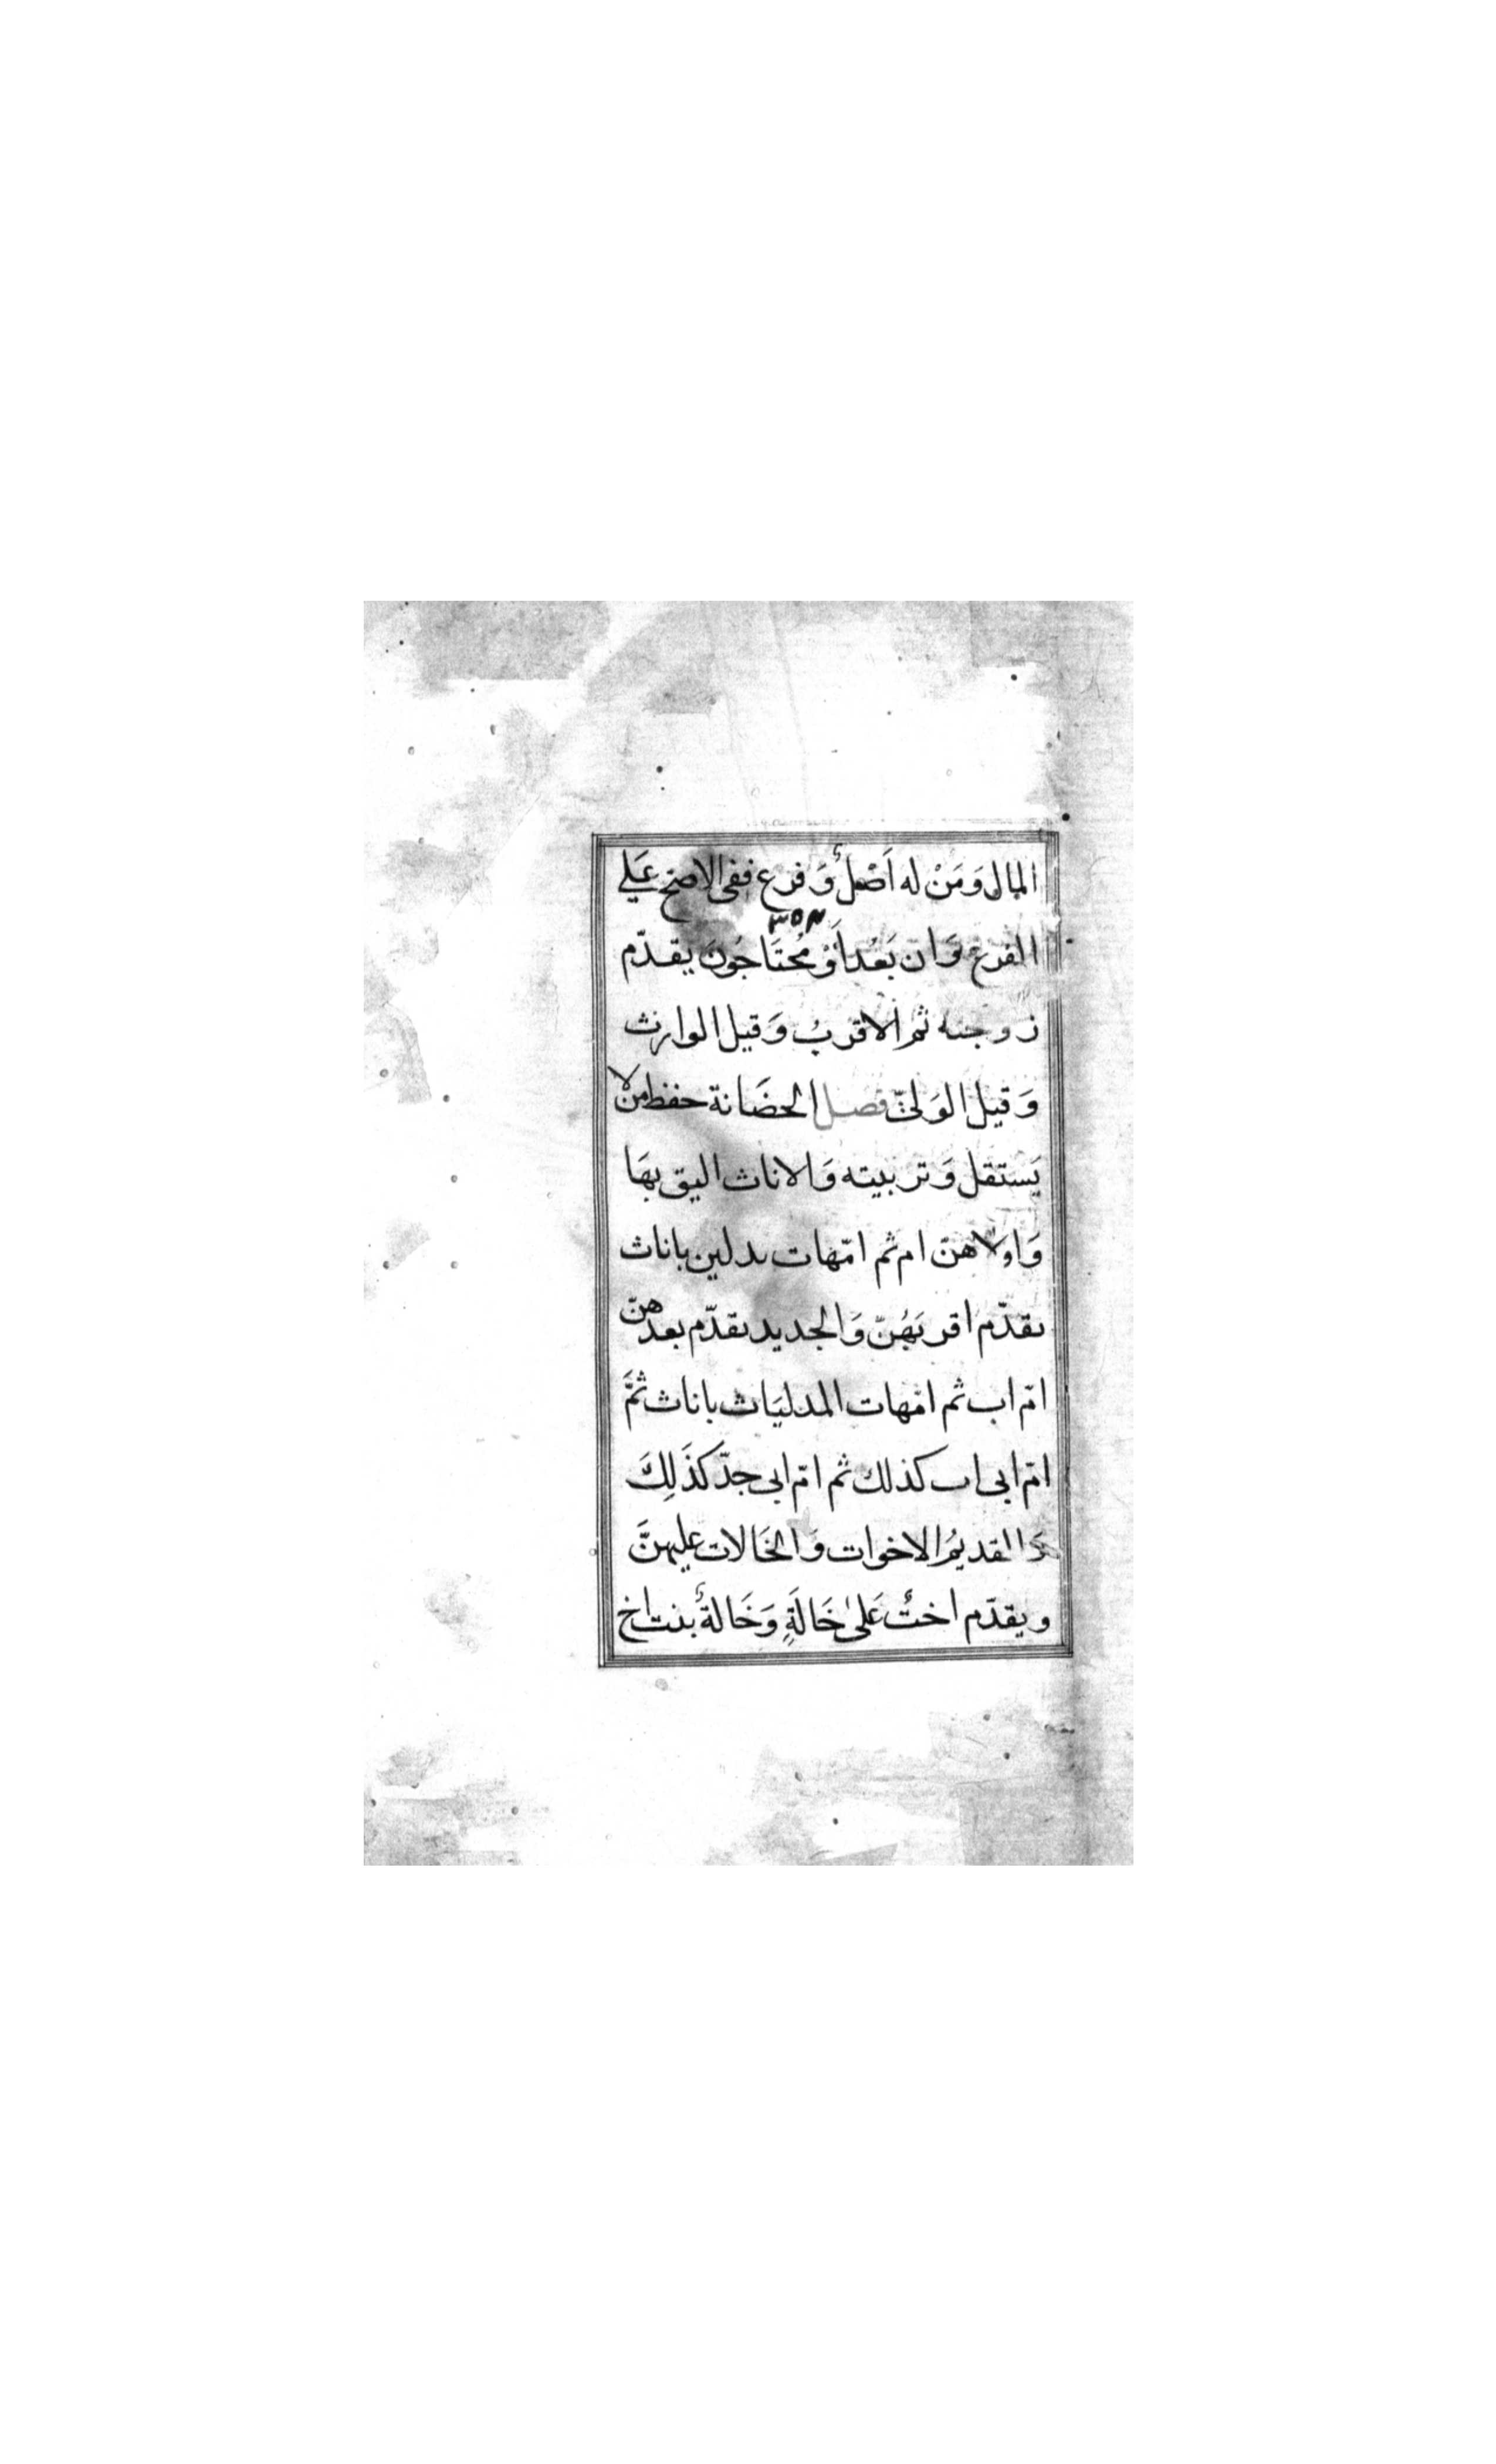 المال وَمَنْ له اَصْلٌ وَ فرع ففى الاصح عَلى
٣٥٣
الفرع وَان بَعُدا وْ مُحتَاجُونَ يقدّم
زوجته ثم الاقربُ وَقيل الوارث
وَقيل الوَلىّ فصل الحضَانة حفظ من لا
يَستقل وَتربيته وَالاناث اليق بهَا
وَاولاهنّ ام ثم امّهات يدلين باناث
يقدّم اقربَهُنّ وَالجديد يقدّم بعدهنّ
امّ اب ثم امّهات المدليَات باناث ثمَّ
امّ ابى اب كذلك ثم امّ ابى جدّ كذَلِكَ
وَالقديمُ الاخوات وَالخَالات عليهنَّ
ويقدّم اختٌ عَلىٰ خَالَةٍ وَخَالةٌ بنت اخ